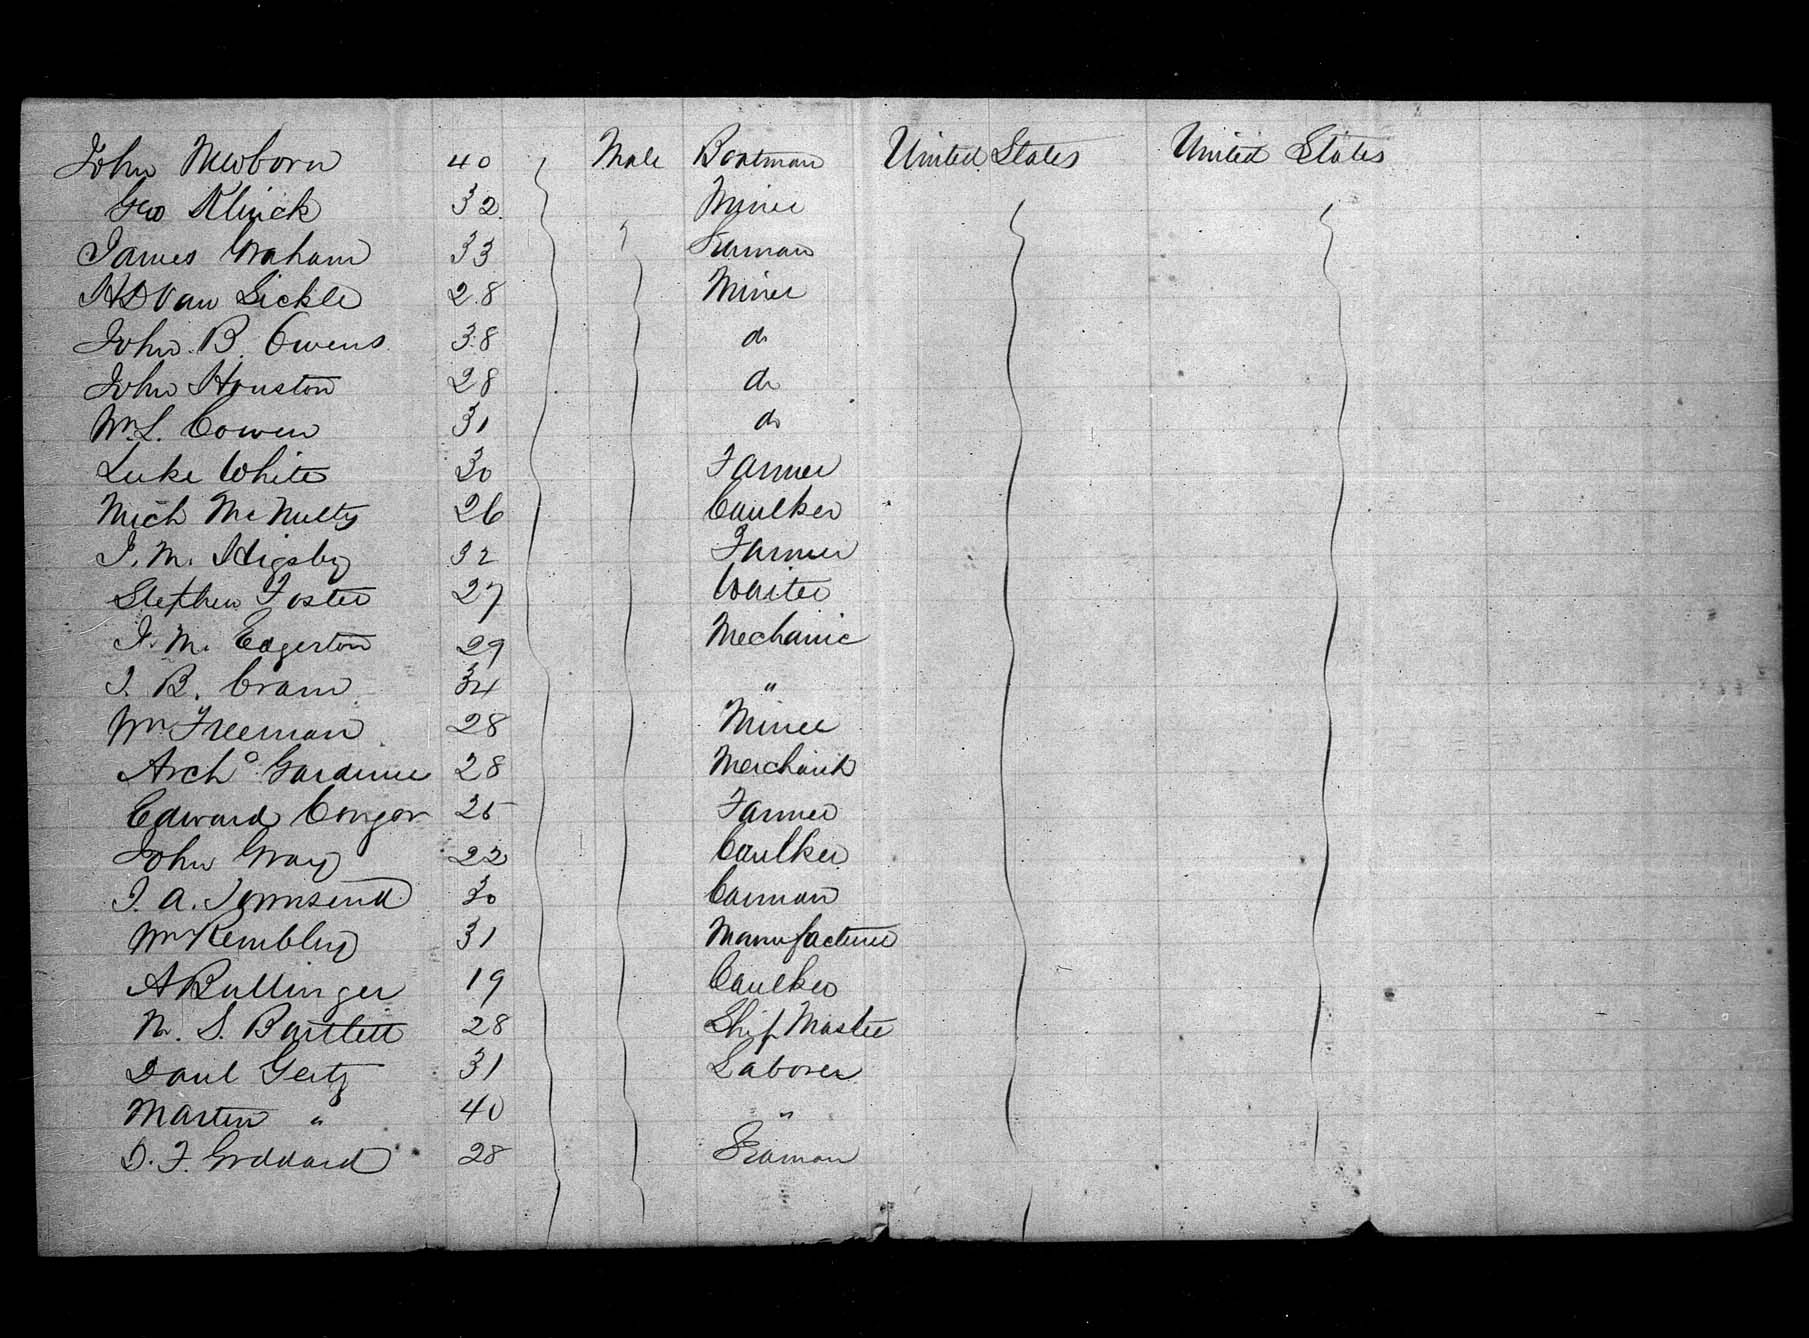 John Newborn 40 Male Boatman United States United States
Geo Klinck 32 Miner
James Graham 33 Seaman
H D Van Sickle 28 Miner
John B. Owens 38 do
John Houston 28 do
Wm L. Cowen 31 do
Luke White 30 Farmer
Mich McNulty 26 Caulker
J. M. Higsby 32 Farmer
Stephen Foster 27 Waiter
J. M. Edgerton 29 Mechanic
J. B. Cram 34 "
Wm Freeman 28 Miner
Archo Gardiner 28 Merchant
Edward Congor 25 Farmer
John Gray 22 Caulker
J. A. Townsend 30 Carman
Wm Kembling 31 Manufacturer
A Bullinger 19 Caulker
N. S. Bartlett 28 Ship Master
Danl Geitz 31 Laborer
Marten " 40 "
D. F. Goddard 28 Seaman